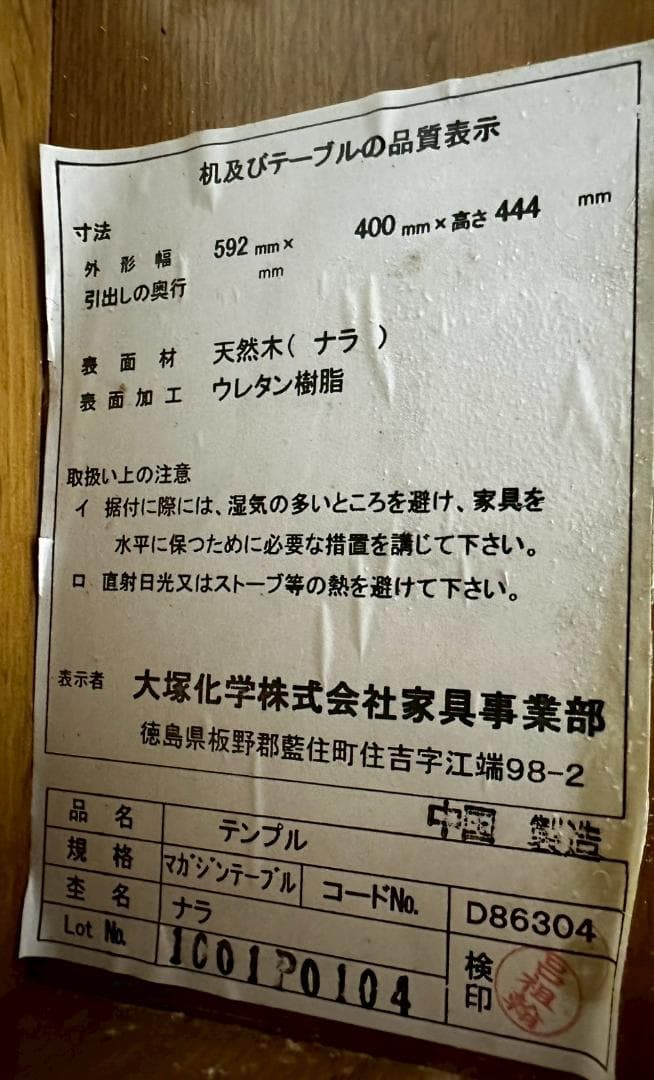 机及びテーブルの品質表示
寸法
外形幅 592 mm× 400 mm×高さ 444 mm
引出しの奥行 mm
表面材 天然木( ナラ )
表面加工 ウレタン樹脂
取扱い上の注意
イ 据付に際には、湿気の多いところを避け、家具を
水平に保つために必要な措置を講じて下さい。
ロ 直射日光又はストーブ等の熱を避けて下さい。
表示者 大塚化学株式会社家具事業部
徳島県板野郡藍住町住吉字江端98-2
中國 製造
品名 テンプル
規格 マガジンテーブル コードNo. D86304
杢名 ナラ
Lot No. 1C01P0104 検印